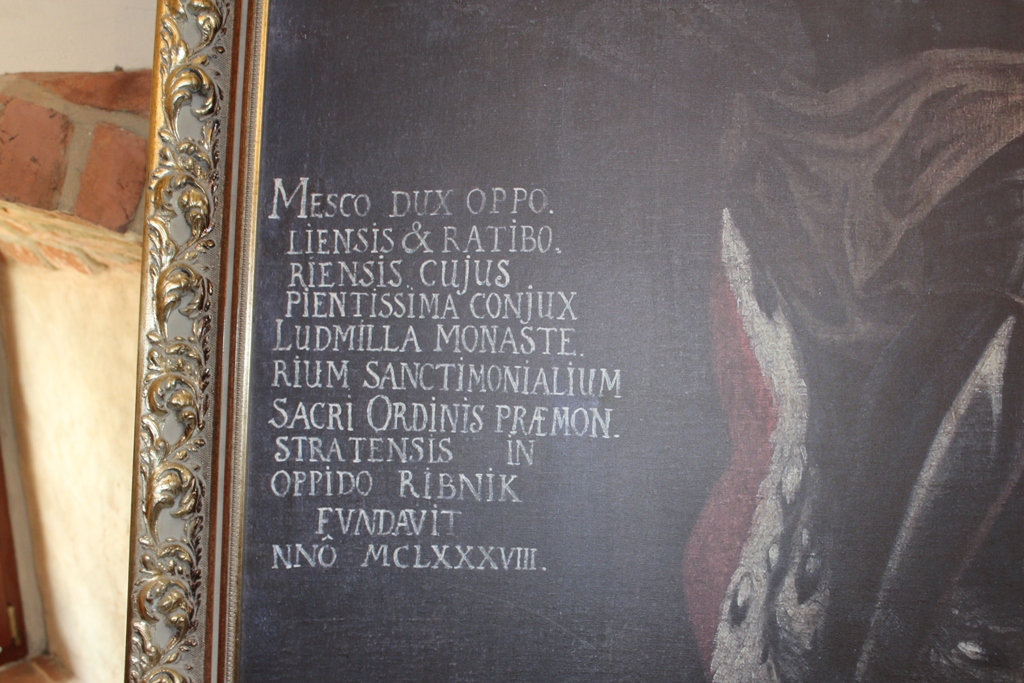 MESCO DUX OPPO.
LIENSIS & RATIBO.
RIENSIS CUJUS
PIENTISSIMA CONJUX
LUDMILLA MONASTE.
RIUM SANCTIMONIALIUM
SACRI ORDINIS PRÆMON.
STRATENSIS IN
OPPIDO RIBNIK
FVNDAVIT
NNO MCLXXXVIII.